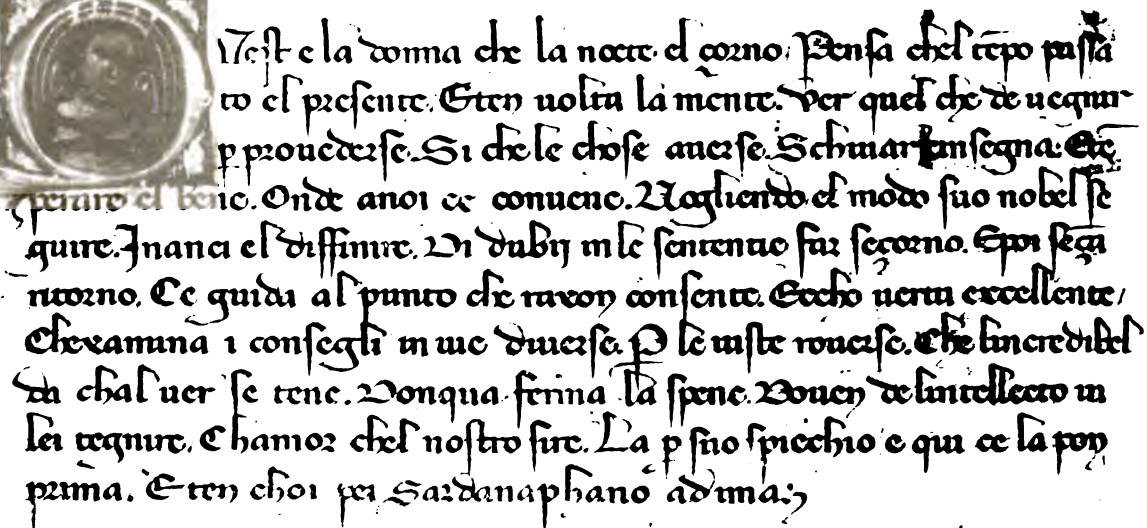 Vest e la donna che la nocte. el çorno. Pensa chel tēpo passa
to el presente. Eten uolta la mente. Ver quel che de uegnir
p prouederse. Si che le chose auerse. Schiuar insegna. Etē
perare el bene. Onde anoi ce conuene. Uogliendo el modo suo nobel se
guire. Inanci el diffinire. Di dubij in le sententie far seçorno. Epoi seçā
ntorno. Ce guida al punto che raxon consente. Eccho uertu excellente
Chexamina i consegli in uie diuerse. P le uiste rouerse. Che lincredibel
da chal uer se tene. Donqua ferma la spene. Douen de lintellecto in
lei tegnire. Chamor chel nostro sire. La p suo spiechio e qui ce la pon
prima. Eten choi pei Sardanaphano ad ima